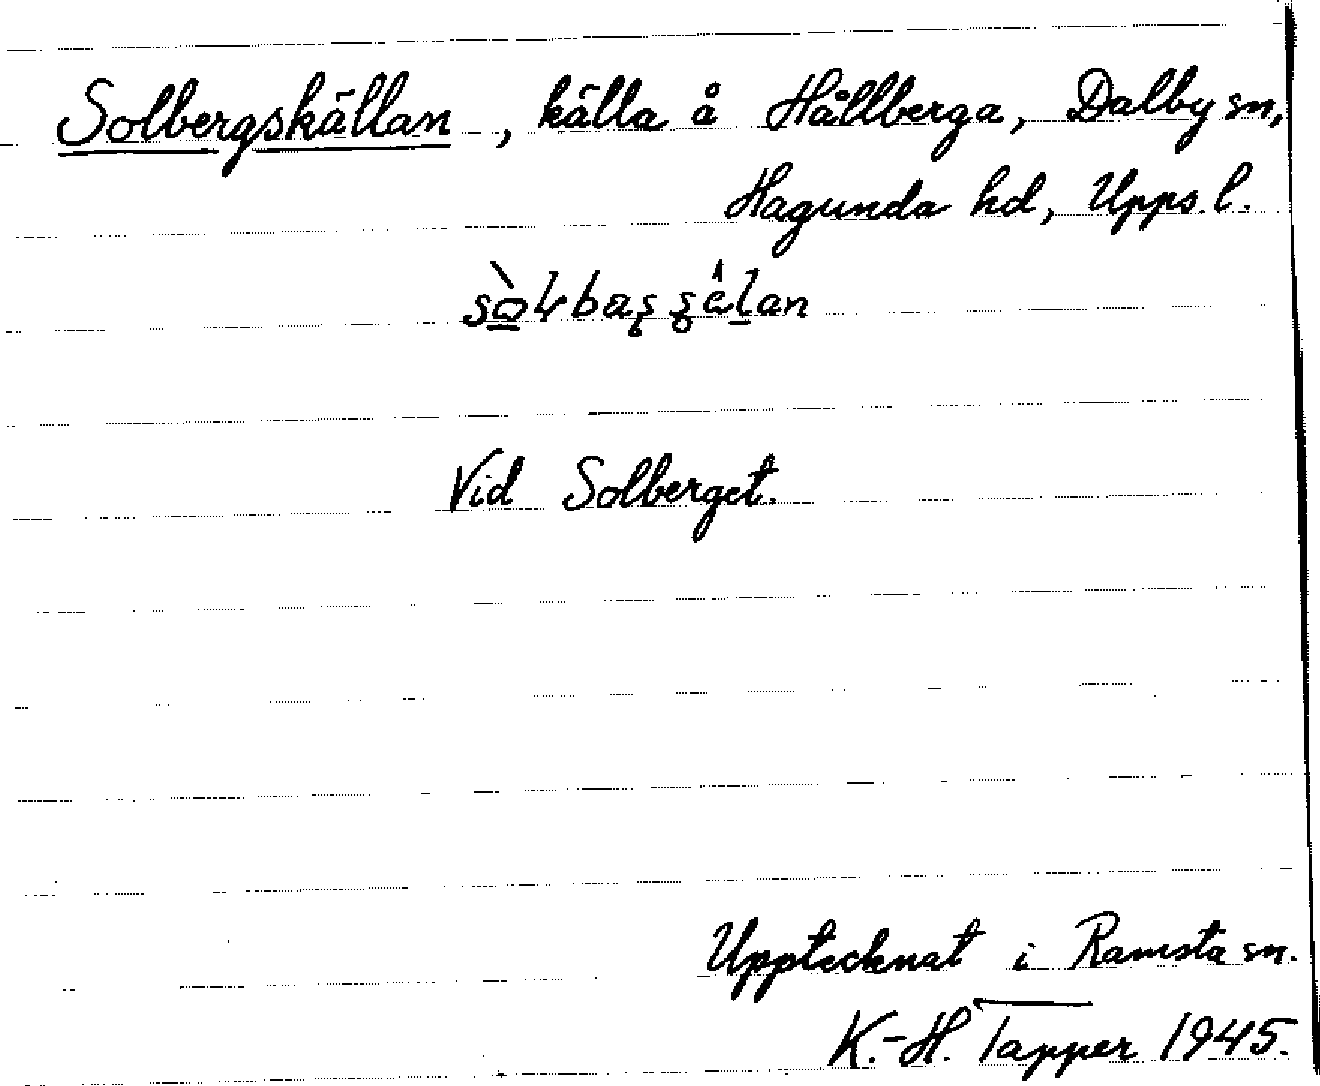 Solbergskällan, källa å Hållberga, Dalby sn,
Hagunda hd, Upps. l.
Vid Solberget.
Upptecknat i Ramsta sn.
K.-H. Tapper 1945.